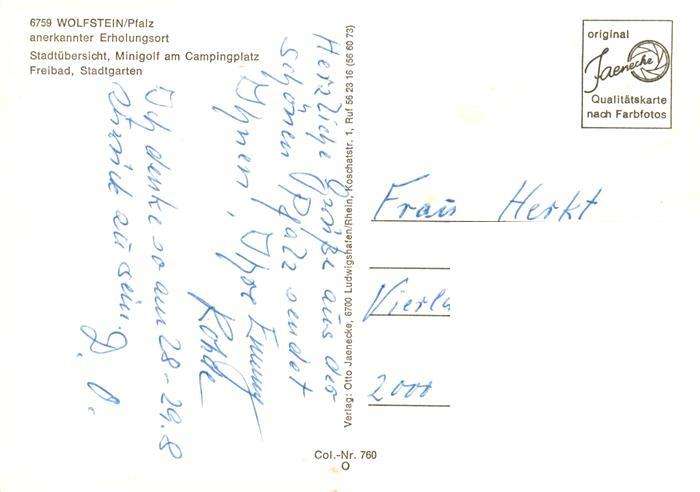 6759 WOLFSTEIN/Pfalz
anerkannter Erholungsort
Stadtübersicht, Minigolf am Campingplatz
Freibad, Stadtgarten
Herzliche Grüße aus der
schönen Pfalz sendet
Ihnen, Ihre Emmy
Ich denke so am 28-29.8
zurück zu sein.
Verlag: Otto Jaenecke, 6700 Ludwigshafen/Rhein, Koschatstr. 1, Ruf 56 23 16 (56 60 73)
original
Jaenecke
Qualitätskarte
nach Farbfotos
Frau Herkt
2000
Col.-Nr. 760
O